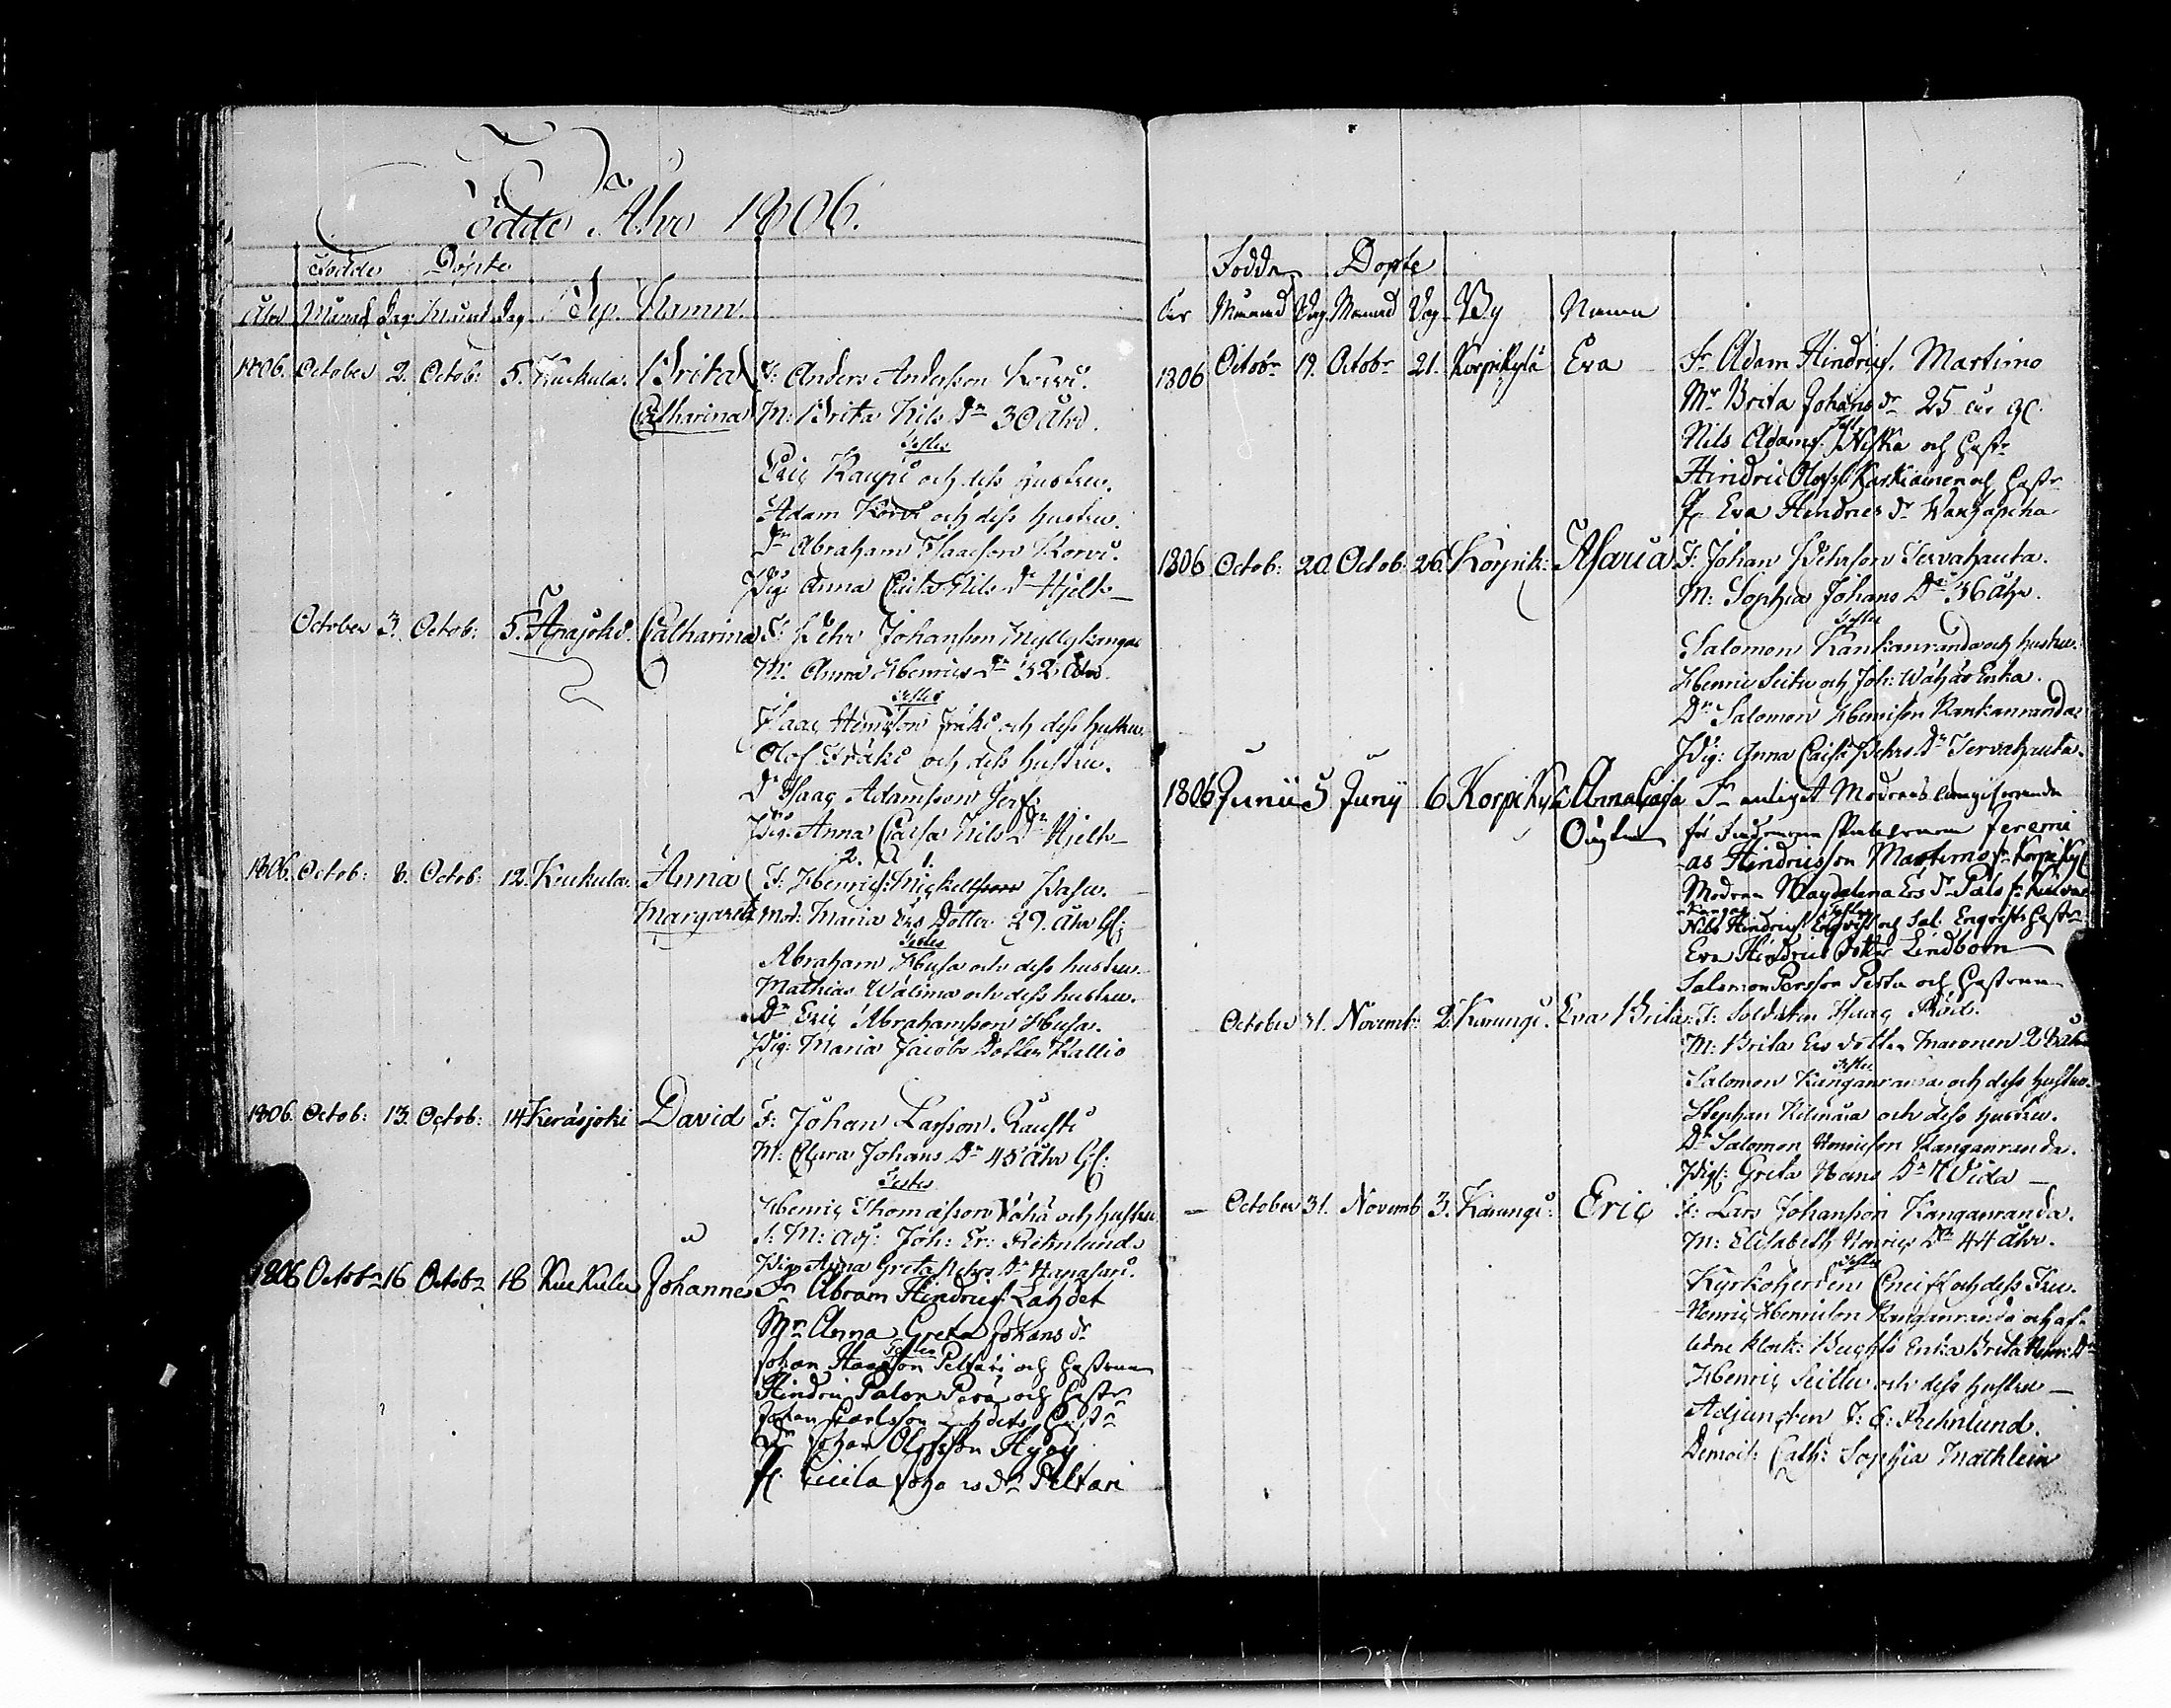 Födde Åhr 1806.
Födde Döpte
Åhr Månad Dag Månad Dag By. Namn.
1806. October 2. Octob: 5. Kuckula. Brita F: Anders Andersson Korvi.
Catharina M: Brita Nils Dr 30 Åhr.
Testes
Eric Kaupi och dess hustru.
Adam Korvi och dess hustru.
Dr Abraham Isaacsson Korvi.
Pig: Anna Caisa Nils Dr Hjelt
October 3. Octob: 5. Arajoki. Catharina F: Pehr Johansson Myllykangas
M: Anna Henrics Dr 32 Åhr.
Testes
Isaac Henricsson Fräki och dess hustru.
Olof Fräki och dess hustru.
Dr Isaac Adamsson
Pig: Anna Caisa Nils Dr Hjelt
2. 1.
1806. Octob: 8. Octob: 12. Kuckula. Anna F: Henrics: Mickelsson
Margareta Mod: Maria Ers Dotter 29. Åhr Gl:
Testes
Abraham Husa och dess hustru.
Mathias Wälimaa och dess hustru.
Dr Eric Abrahamsson Husa.
Pig: Maria Jacobs Dotter Kallio
1806. Octob: 13. Octob: 14. Keräsjoki David F: Johan Larsson. Rausti
M: Clara Johans Dr 45 Åhr Gl:
Testes
Henric Thomasson Wähä och hustru
Adj: Joh: Er: Rehnlund.
Pig: Anna Greta Pehrs Dr
1806 Octobr 16 Octobr 18 Kuckula Johannes Fr Abram Hindrics: Lahdet
Mr Anna Greta Johans dr
Testes
Johan Isacsson Peltari och hustrun
Hindric Palon Perä och hustr
Johan Carlsson Lahdet hustr
Dr Johan Olofsson
P: Cicila Joha ns dr Peltari
Födde Döpte
År Månad Dag Månad Dag By Namn
1806 Octobr 19. Octobr 21. Korpikylä Eva Fr Adam Hindrics. Martimo
Mr Brita Johans dr 25 år gl.
Test
Nils Adams: Niska och hustr
Hindric Olofss Karkiainen och hustr
P. Eva Hindrics dr
1806 Octob: 20. Octob: 26. Korpik: Asaria F: Johan Pehrsson Tervahauta.
M: Sophia Johans Dr 36 Åhr.
Testes
Salomon Kankaanranda och hustru.
Henric Seitu och Joh: Wähäs Enka.
Dr Salomon Henricson Kankanranda
Pig: Anna Caisa Pehrs Dr Tervahauta.
1806 Junii 5 Junij 6 Korpikylä Anna Caisa Fr enligt Modrens
Oägta Jeremi
as Hindricsson Martimo fr Korpikyl
Modren Magdalena Ers dr Palo
Testes
Nils Hindrics och Sal: Enqvists hustr
Eva Hindrics Dotter Lindbom
Salomon Persson Perta och hustrun
October 31. Novemb: 2. Karungi. Eva Brita F: Soldaten Isaac
M: Brita Ers dotter Maronen
Testes
Salomon Kanganranda och dess hustru.
Stephan och dess hustru.
Dr Salomon Henricsson Kanganranda.
Pig: Greta Hans Dr Wida
October 31. Novemb 3. Karungi. Eric F: Lars Johansson Kanganranda.
M: Elisabeth Henrics Dr 44 Åhr.
Testes
Kyrkoherden Cneiff och dess Fru.
Henric Henricson Kanganranda och af-
ledne klock: Enka Brita Henr: Dr
Henric Seitu och dess hustru
Adjuncten J: E: Rehnlund.
Demois: Cath: Sophia Mathlein